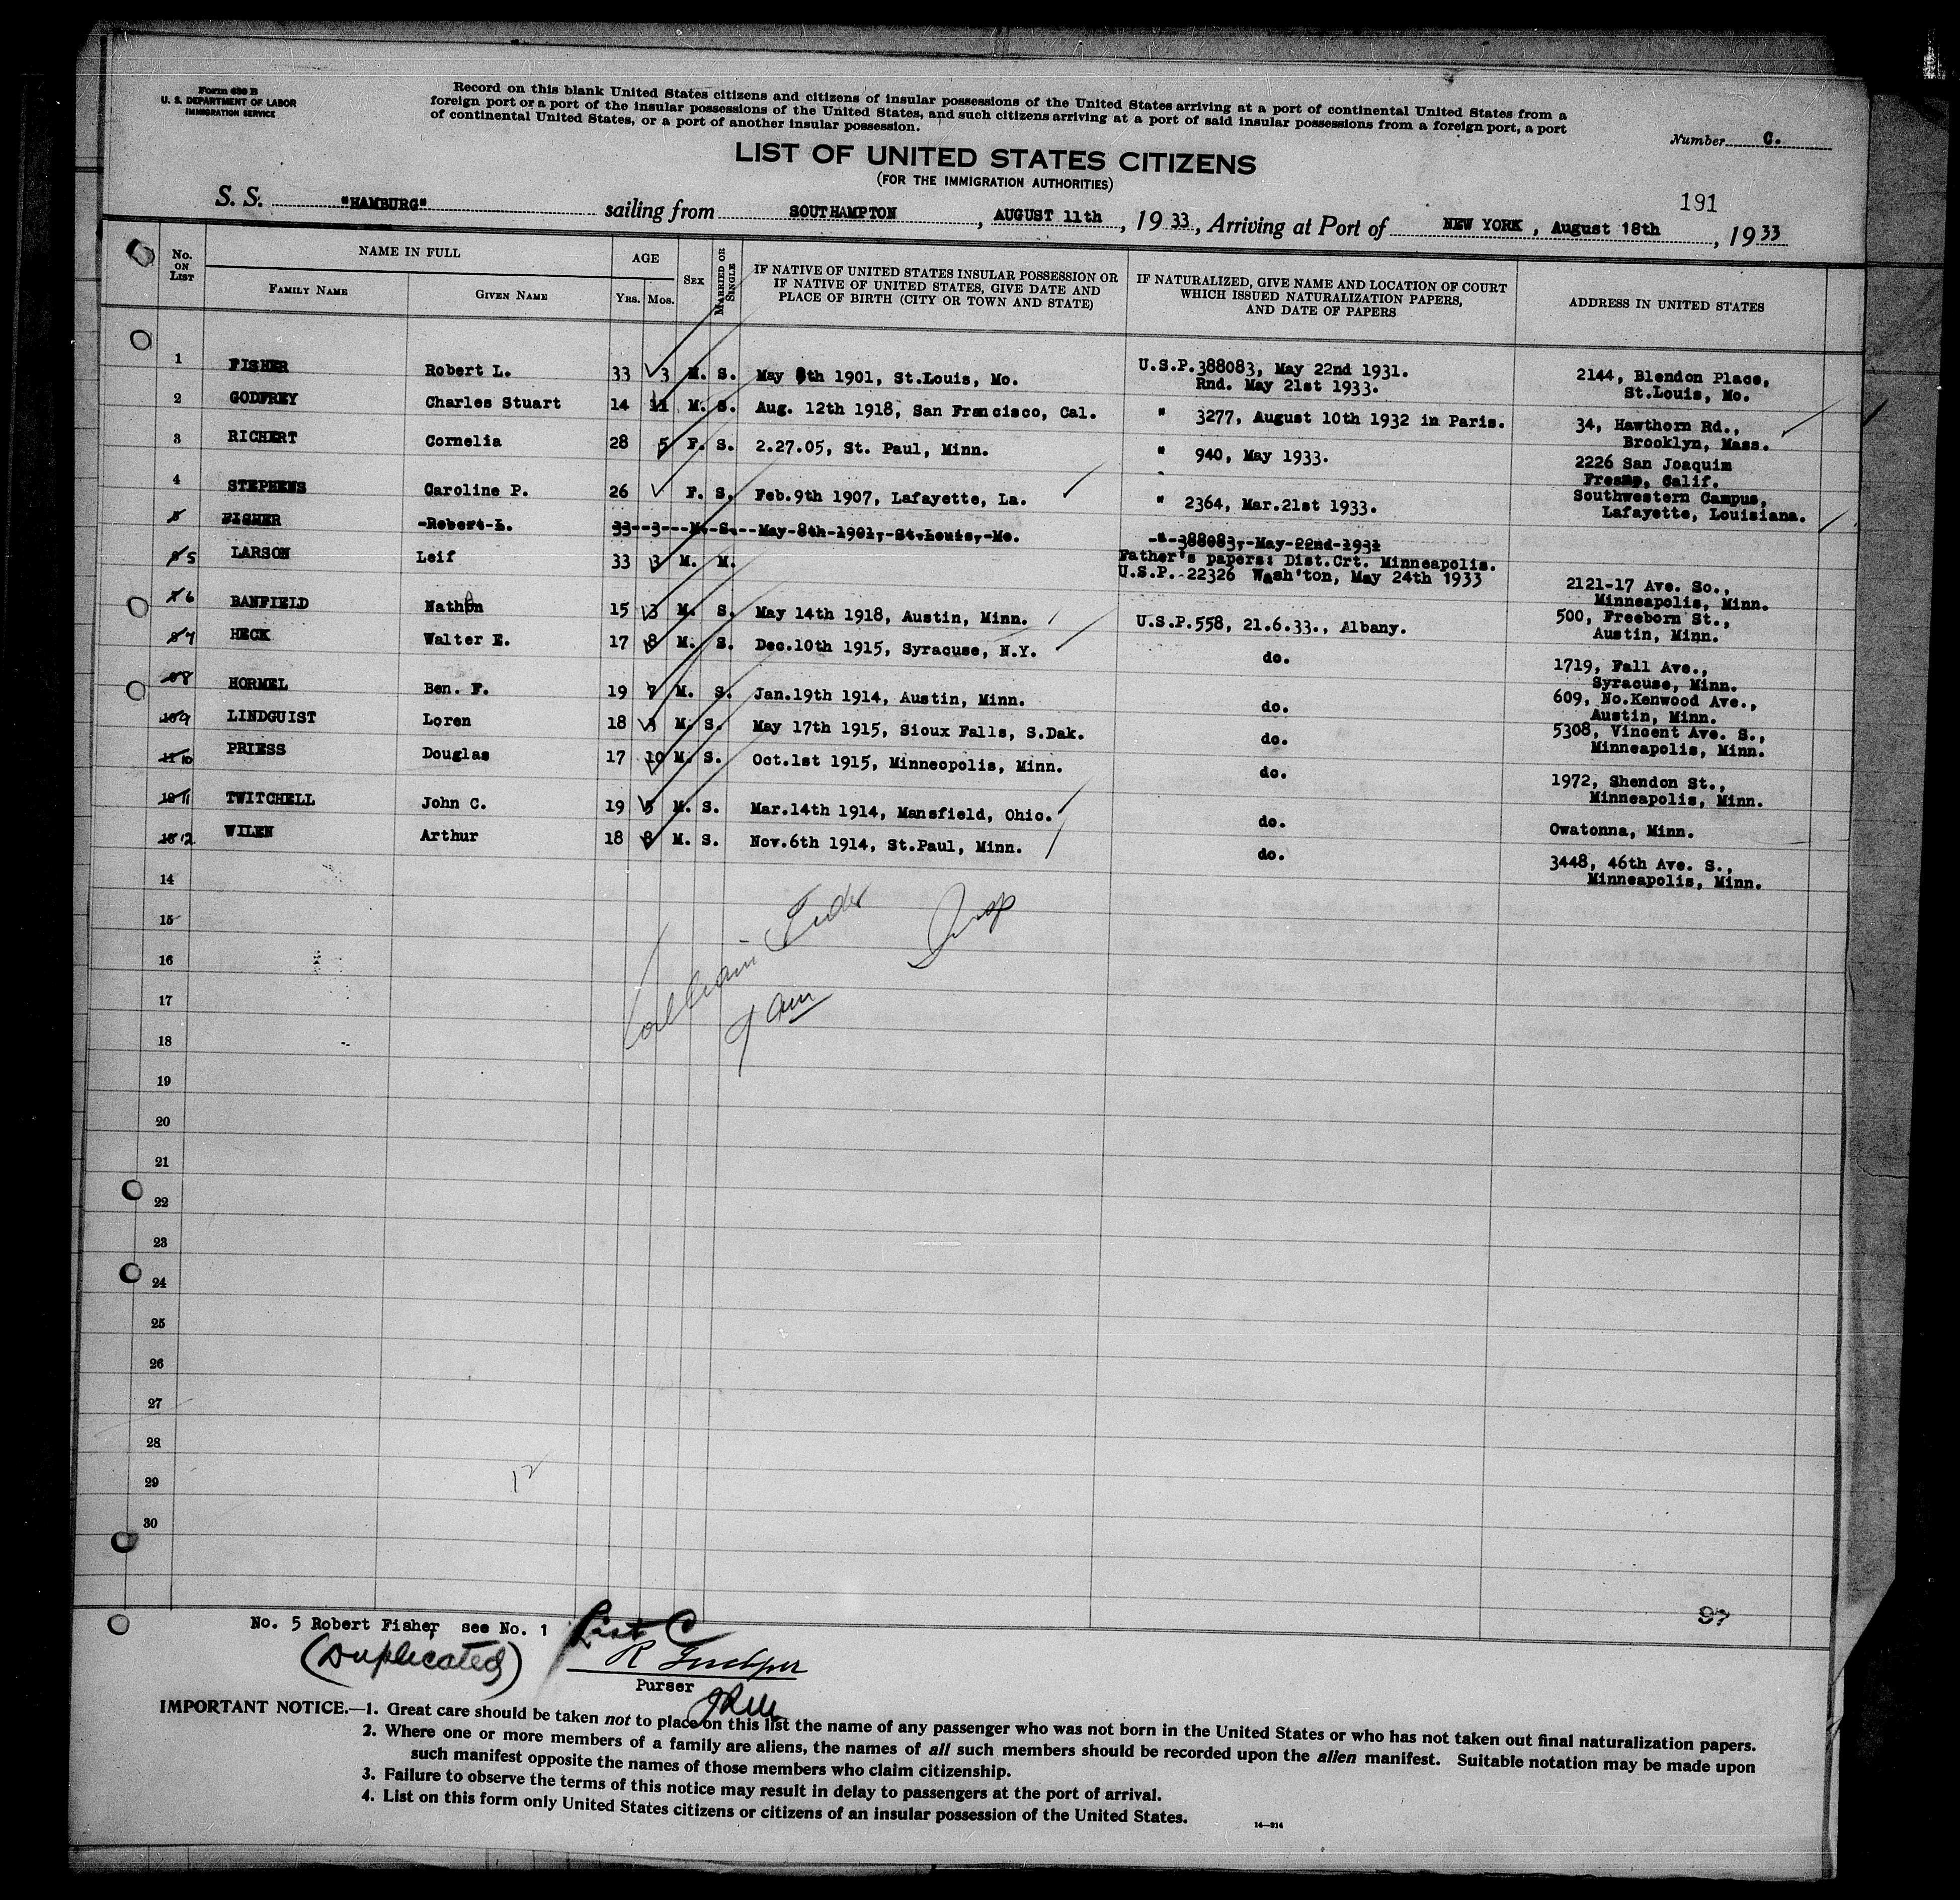 Form 630 B
U. S. DEPARTMENT OF LABOR
IMMIGRATION SERVICE
Record on this blank United States citizens and citizens of insular possessions of the United States arriving at a port of continental United States from a
foreign port or a port of the insular possessions of the United States, and such citizens arriving at a port of said insular possessions from a foreign port, a port
of continental United States, or a port of another insular possession.
Number C.
LIST OF UNITED STATES CITIZENS
(FOR THE IMMIGRATION AUTHORITIES)
191
S. S. "HAMBURG" sailing from SOUTHAMPTON, AUGUST 11th, 1933, Arriving at Port of NEW YORK, August 18th, 1933
No. ON LIST
NAME IN FULL
FAMILY NAME
GIVEN NAME
AGE
YRS.
MOS.
SEX
MARRIED OR SINGLE
IF NATIVE OF UNITED STATES INSULAR POSSESSION OR
IF NATIVE OF UNITED STATES, GIVE DATE AND
PLACE OF BIRTH (CITY OR TOWN AND STATE)
IF NATURALIZED, GIVE NAME AND LOCATION OF COURT
WHICH ISSUED NATURALIZATION PAPERS,
AND DATE OF PAPERS
ADDRESS IN UNITED STATES
1 FISHER Robert L. 33 3 M. S. May 8th 1901, St.Louis, Mo. U.S.P.388083, May 22nd 1931. 2144, Blendon Place,
Rnd. May 21st 1933. St.Louis, Mo.
2 GODFREY Charles Stuart 14 11 M. S. Aug. 12th 1918, San Francisco, Cal. " 3277, August 10th 1932 in Paris. 34, Hawthorn Rd.,
Brooklyn, Mass.
3 RICHERT Cornelia 28 5 F. S. 2.27.05, St. Paul, Minn. " 940, May 1933. 2226 San Joaquim
Fresno, Calif.
4 STEPHENS Caroline P. 26 F. S. Feb.9th 1907, Lafayette, La. " 2364, Mar.21st 1933. Southwestern Campus,
Lafayette, Louisiana.
5 FISHER -Robert-L. 33--3---M.-S.--May-8th-1901,-St.Louis,-Mo. -"-388083,-May-22nd-1931
6 5 LARSON Leif 33 3 M. M. Father's papers: Dist.Crt. Minneapolis.
U.S.P. 22326 Wash'ton, May 24th 1933 2121-17 Ave. So.,
Minneapolis, Minn.
7 6 BANFIELD Nathan 15 3 M. S. May 14th 1918, Austin, Minn. U.S.P.558, 21.6.33., Albany. 500, Freeborn St.,
Austin, Minn.
8 7 HECK Walter E. 17 8 M. S. Dec.10th 1915, Syracuse, N.Y. do. 1719, Fall Ave.,
Syracuse, Minn.
9 8 HORMEL Ben. F. 19 7 M. S. Jan.19th 1914, Austin, Minn. do. 609, No.Kenwood Ave.,
Austin, Minn.
10 9 LINDGUIST Loren 18 3 M. S. May 17th 1915, Sioux Falls, S.Dak. do. 5308, Vincent Ave. S.,
Minneapolis, Minn.
11 10 PRIESS Douglas 17 10 M. S. Oct.1st 1915, Minneopolis, Minn. do. 1972, Shendon St.,
Minneapolis, Minn.
12 11 TWITCHELL John C. 19 5 M. S. Mar.14th 1914, Mansfield, Ohio. do. Owatonna, Minn.
13 12 WILEN Arthur 18 8 M. S. Nov.6th 1914, St.Paul, Minn. do. 3448, 46th Ave. S.,
Minneapolis, Minn.
14
15
16
17
18
19
20
21
22
23
24
25
26
27
28
29
12
30
97
No. 5 Robert Fisher see No. 1
(Duplicated)
List C
Purser
IMPORTANT NOTICE.—1. Great care should be taken not to place on this list the name of any passenger who was not born in the United States or who has not taken out final naturalization papers.
2. Where one or more members of a family are aliens, the names of all such members should be recorded upon the alien manifest. Suitable notation may be made upon
such manifest opposite the names of those members who claim citizenship.
3. Failure to observe the terms of this notice may result in delay to passengers at the port of arrival.
4. List on this form only United States citizens or citizens of an insular possession of the United States.
14—214